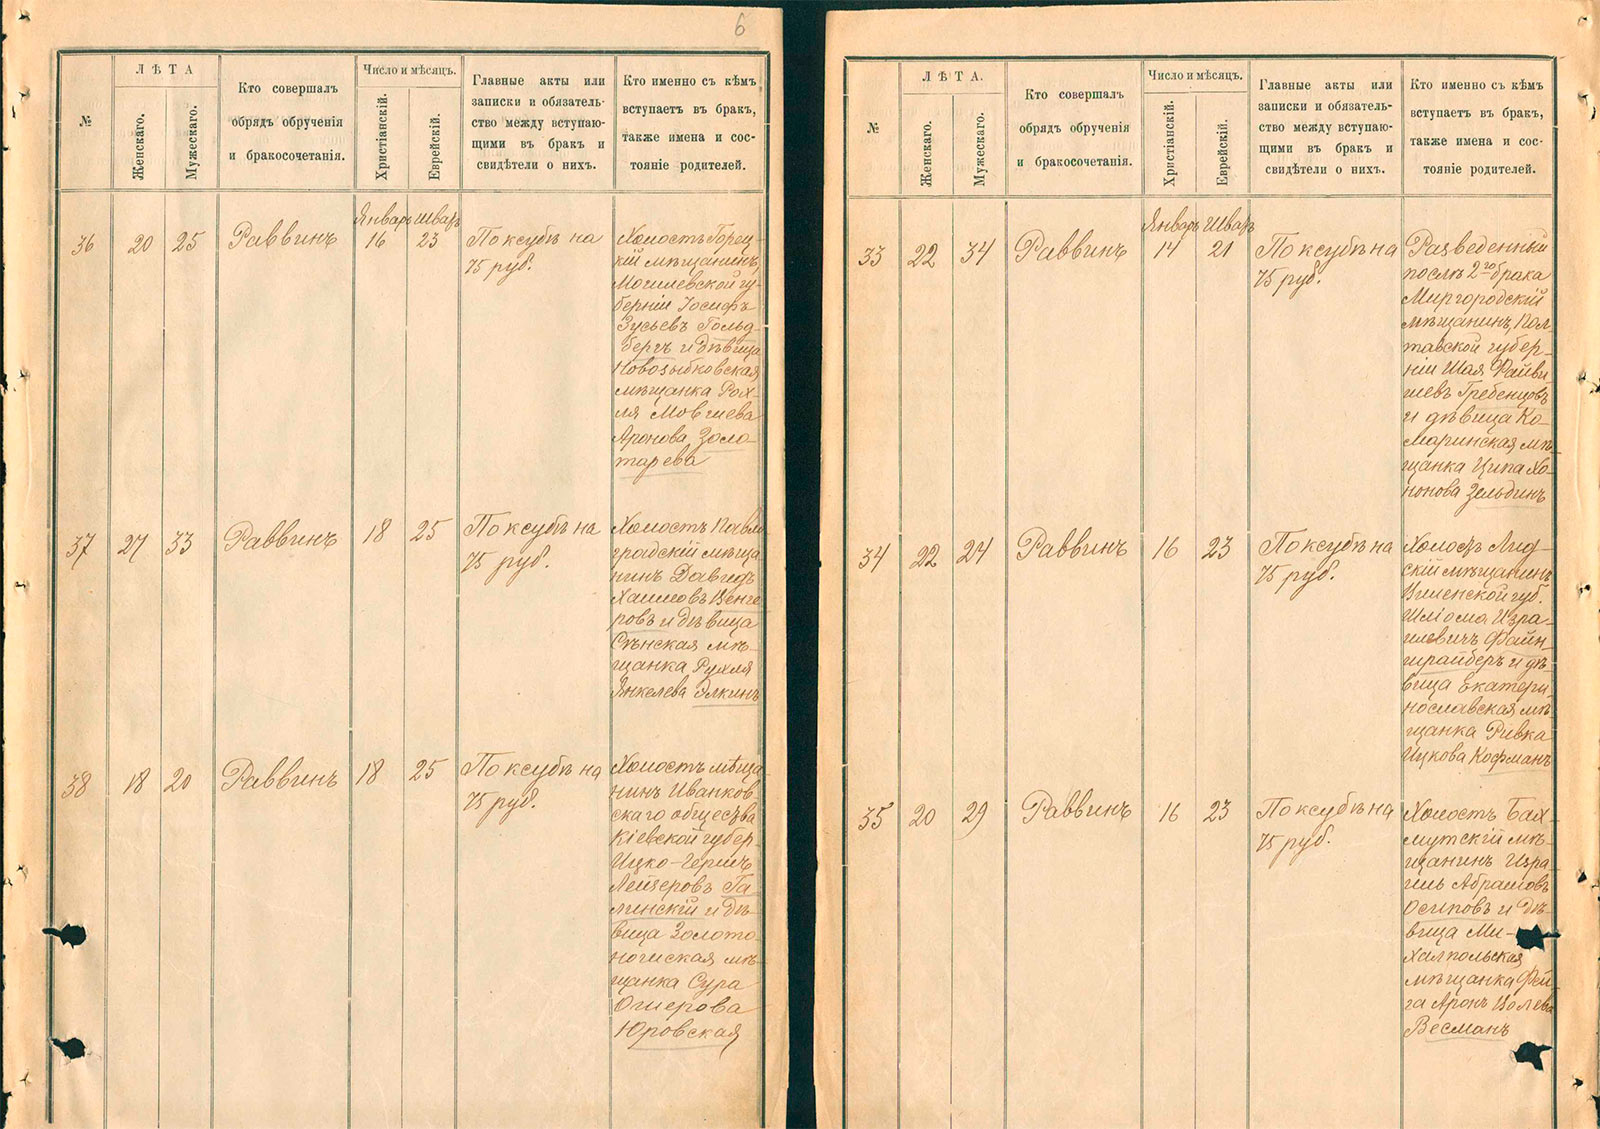 6
№
ЛѢТА
Женскаго.
Мужескаго.
Кто совершалъ
обрядъ обрученія
и бракосочетанія.
Число и мѣсяцъ.
Христіанскій.
Еврейскій.
Главные акты или
записки и обязатель-
ство между вступаю-
щими въ бракъ и
свидѣтели о нихъ.
Кто именно съ кѣмъ
вступаетъ въ бракъ,
также имена и сос-
тояніе родителей.
36
20
25
Раввинъ
Январь
16
Шватъ
23
По ксубѣ на
75 руб.
Холостъ Горец-
кій мѣщанинъ,
Могилевской гу-
берніи Іосифъ
Зусьевъ Гольд-
бергъ и дѣвица
Новозыбковская
мѣщанка Рох-
ля Мовшева
Аронова Золо-
тарева
37
27
33
Раввинъ
18
25
По ксубѣ на
75 руб.
Холостъ Павло-
градскій мѣща-
нинъ Давидъ
Хаимовъ Венге-
ровъ и дѣвица
Сѣнская мѣ-
щанка Рухля
Янкелева Элкинъ
38
18
20
Раввинъ
18
25
По ксубѣ на
75 руб.
Холостъ мѣща-
нинъ Иванков-
скаго общества
Кіевской губер.
Ицко-Гершъ
Лейзеровъ Га-
линскій и дѣ-
вица Золото-
ношская мѣ-
щанка Сура
Ошерова
Юровская
№
ЛѢТА.
Женскаго.
Мужескаго.
Кто совершалъ
обрядъ обрученія
и бракосочетанія.
Число и мѣсяцъ.
Христіанскій.
Еврейскій.
Главные акты или
записки и обязатель-
ство между вступаю-
щими въ бракъ и
свидѣтели о нихъ.
Кто именно съ кѣмъ
вступаетъ въ бракъ,
также имена и сос-
тояніе родителей.
33
22
34
Раввинъ
Январь
14
Шватъ
21
По ксубѣ на
75 руб.
Разведенный
послѣ 2го брака
Миргородскій
мѣщанинъ, Пол-
тавской губер-
ніи Шая Файви-
шевъ Гребенцовъ
и дѣвица Ко-
маринская мѣ-
щанка Ципа Хо-
нонова Зельдинъ
34
22
24
Раввинъ
16
23
По ксубѣ на
75 руб.
Холостъ Лид-
скій мѣщанинъ
Виленской губ.
Шліома Изра-
илевичъ Файн-
шрайберъ и дѣ-
вица Екатери-
нославская мѣ-
щанка Ривка
Ицкова Кофманъ
35
20
29
Раввинъ
16
23
По ксубѣ на
75 руб.
Холостъ Бах-
мутскій мѣ-
щанинъ Изра-
иль Абрамовъ
Осиповъ и дѣ-
вица Ми-
халпольская
мѣщанка Фей-
га Аронъ Волева
Весманъ